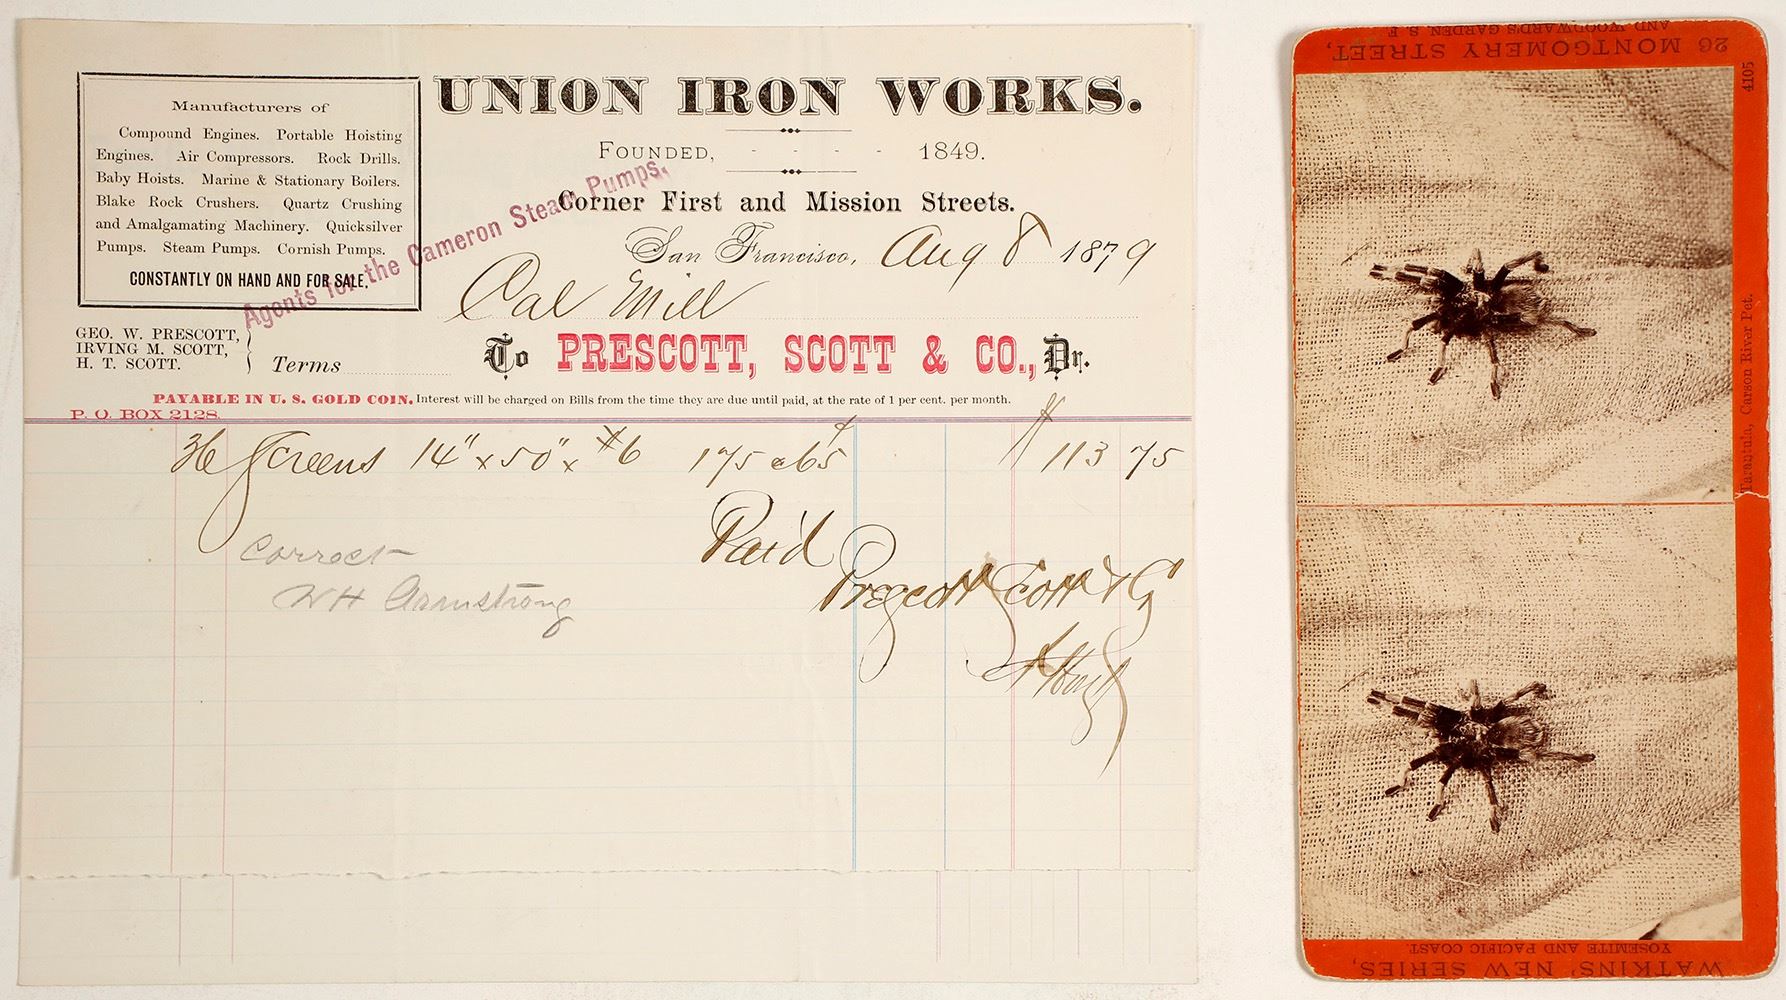 Manufacturers of
Compound Engines. Portable Hoisting
Engines. Air Compressors. Rock Drills.
Baby Hoists. Marine & Stationary Boilers.
Blake Rock Crushers. Quartz Crushing
and Amalgamating Machinery. Quicksilver
Pumps. Steam Pumps. Cornish Pumps.
CONSTANTLY ON HAND AND FOR SALE.
UNION IRON WORKS.
FOUNDED, - - - - 1849.
Corner First and Mission Streets.
Agents for the Cameron Steam Pumps.
San Francisco, Aug 8 1879
Cal Mill
GEO. W. PRESCOTT,
IRVING M. SCOTT,
H. T. SCOTT.
Terms
To PRESCOTT, SCOTT & CO., Dr.
PAYABLE IN U. S. GOLD COIN. Interest will be charged on Bills from the time they are due until paid, at the rate of 1 per cent. per month.
P. O. BOX 2128.
36 Screens 14" x 50" x #6 175 @ 65¢ $113 75
Paid
Prescott Scott & Co
Correct
WH Armstrong
26 MONTGOMERY STREET,
AND WOODWARD'S GARDEN, S. F.
4105
Tarantula, Carson River Pet.
WATKINS' NEW SERIES,
YOSEMITE AND PACIFIC COAST.